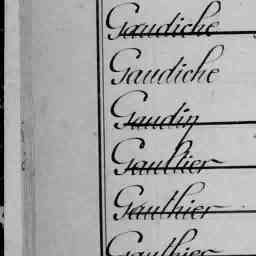 Gaudiche
Gaudiche
Gaudin
Gaultier
Gauthier
Gauthier